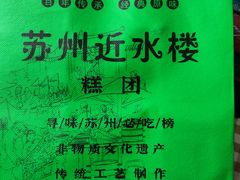 百年传承 经典原味
苏州近水楼
糕团
寻/味/苏/州/必/吃/榜
非物质文化遗产
传统工艺制作